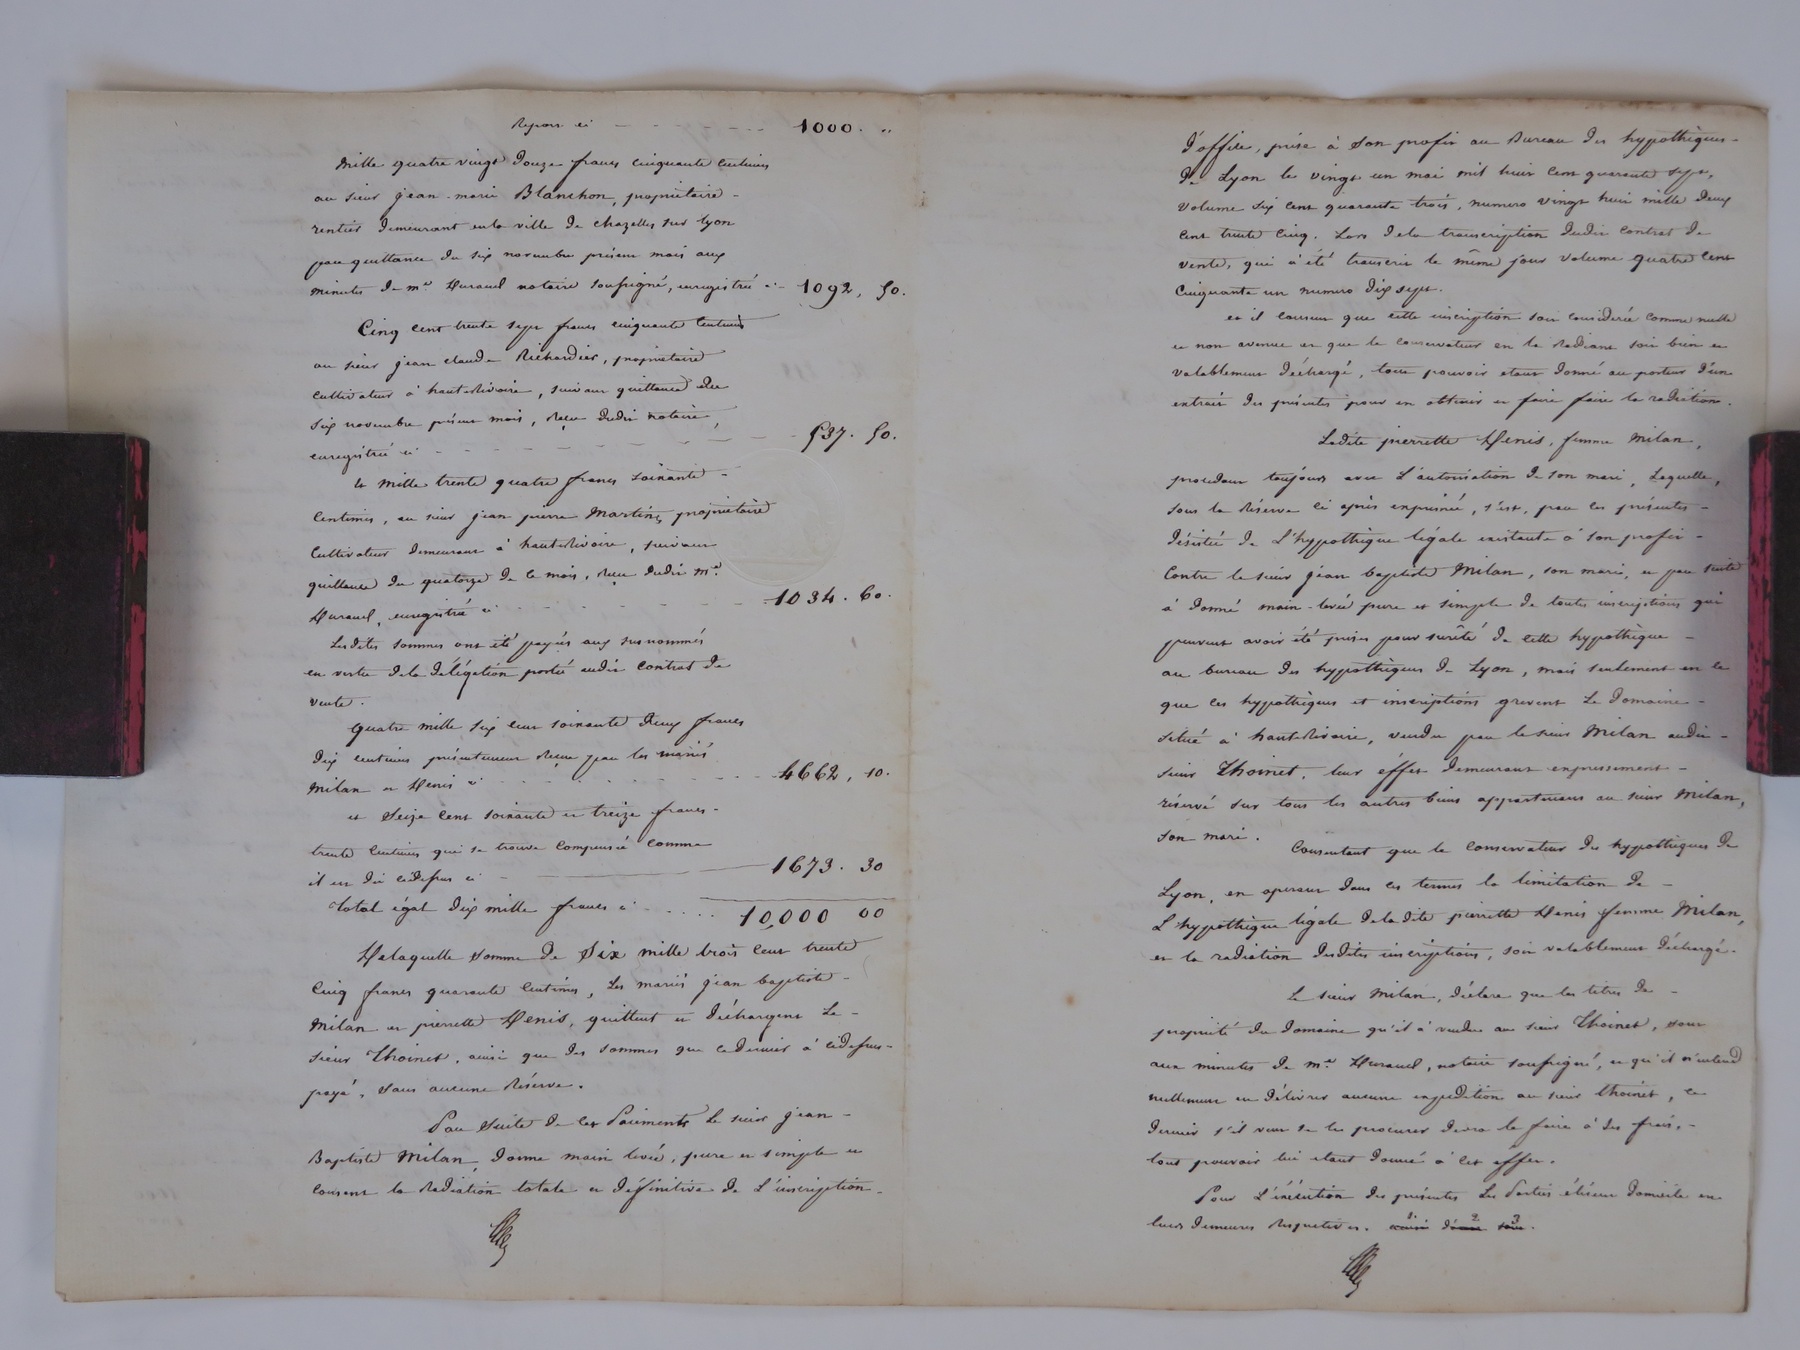 Report ci - - - - - - 1000. "
Mille quatre vingt douze francs cinquante centimes
au sieur jean-marie Blanchon, propriétaire-
rentier demeurant en la ville de chazelles sur lyon
par quittance du six novembre présent mois aux
minutes de me. notaire soussigné, enregistré ci- 1092, 50.
Cinq cent trente sept francs cinquante centimes
au sieur jean claude Richardier, propriétaire
cultivateur à hauterivoire, suivant quittance du
six novembre présent mois, reçue dudit notaire,
enregistrée ci - - - - - - 537. 50.
et Mille trente quatre francs soixante -
centimes, au sieur jean pierre Martin, propriétaire
cultivateur demeurant à hauterivoire, suivant
quittance du quatorze de ce mois, reçue dudit me.
enregistré ci - - - - - - 1034. 60.
Lesdites sommes ont été payées aux susnommés
en vertu de la délégation portée audit contrat de
vente.
quatre mille six cent soixante deux francs
dix centimes présentement reçue par les mariés
Milan et Henis ci - - - - - - 4662, 10.
et Seize cent soixante et treize francs-
trente centimes qui se trouve compensée comme
il est dit cidessus ci - 1673. 30
Total égal dix mille francs ci . . . . . 10,000 00
De laquelle somme de Six mille trois cent trente
cinq francs quarante centimes, Les mariés jean baptiste-
Milan et pierrette Henis, quittent et déchargent Le-
sieur Thoinet, ainsi que des sommes que ce dernier à cidessus-
payé, sans aucune réserve.
Par Suite de ces Paiements Le sieur jean-
Baptiste Milan, donne main levée, pure et simple et
consent la radiation totale et définitive de L'inscription-
D'office, prise à son profit au Bureau des hypothèques-
De Lyon le vingt un mai mil huit cent quarante sept,
volume six cent quarante trois, numero vingt huit mille deux
cent trente cinq. Lors dela transcription dudit contrat de
vente, qui à été transcrit le même jour volume quatre cent
cinquante un numero dix sept.
et il consent que cette inscription soit considérée comme nulle
et non avenue et que le conservateur en la radiant soit bien et
valablement déchargé, tout pouvoir étant donné au porteur d'un
extrait des présentes pour en obtenir et faire faire la radiation.
Ladite pierrette Henis, femme Milan,
procedant toujours avec L'autorisation de son mari, Laquelle,
sous la réserve ci après exprimée, s'est, par ces présentes-
désistée de L'hypothèque légale existante à son profit-
contre le sieur jean baptiste Milan, son mari, et par suite
à donné main-levée pure et simple de toutes inscriptions qui
peuvent avoir été prises pour sûrêté de cette hypothèque -
au bureau des hypothèques de Lyon, mais seulement en ce
que ces hypothèques et inscriptions grevent Le domaine-
situé à hauterivoire, vendu par le sieur Milan audit-
sieur Thoinet, leur effet demeurant expressement-
réservé sur tous les autres biens appartenans au sieur Milan,
son mari. Consentant que le conservateur des hypothèques de
Lyon, en operant dans ces termes la limitation de -
L'hypothèque légale deladite pierrette Henis femme Milan,
et la radiation desdites inscriptions, soit valablement déchargé.
Le sieur Milan, déclare que les titres de -
propriété du domaine qu'il à vendu au sieur Thoinet, sont
aux minutes de me. notaire soussigné, et qu'il n'entend
nullement en délivrer aucune expedition au sieur thoinet, ce
dernier s'il veut se les procurer devra le faire à ses frais,-
tout pouvoir lui étant donné à cet effet.
Pour L'éxécution des présentes Les Parties élisent domicile en
leurs demeures respectives.